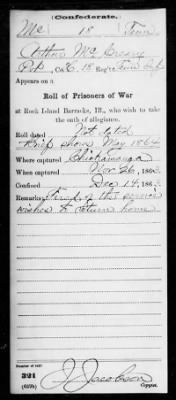 (Confederate.)
Mc 18 Tenn
Arthur McCreary
Pvt, Co. C, 18 Reg't Tenn Inf
Appears on a
Roll of Prisoners of War
at Rock Island Barracks, Ill., who wish to take
the oath of allegiance.
Roll dated Not dated
shows May 1864
Where captured Chickamauga
When captured Nov 26, 1863
Confined Dec 14, 1863
Remarks: Tired of the service
wishes to return home
Number of roll:
321
J. Jacobson
Copyist.